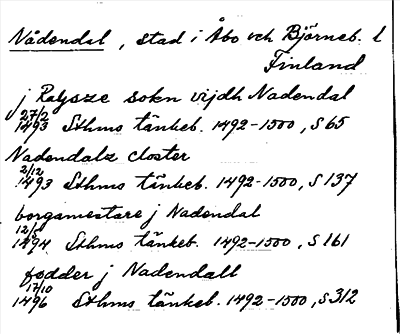 Nådendal, stad i Åbo och Björneb. l
Finland
j Raysze sokn vijdh Nadendal
27/2
1493 Sthms tänkeb. 1492-1500, S 65
Nadendalz closter
2/12
1493 Sthms tänkeb. 1492-1500, S 137
borgamestare j Nadendal
1494 Sthms tänkeb. 1492-1500, S 161
fødder j Nadendall
17/10
1496 Sthms tänkeb. 1492-1500, S 312